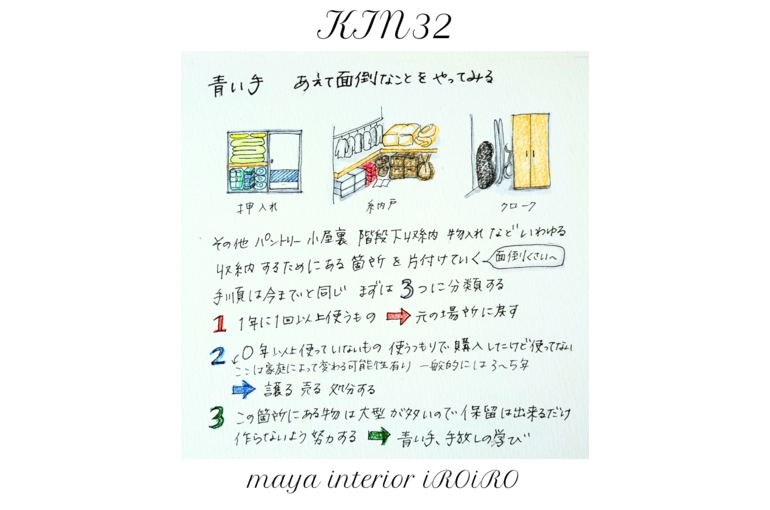 KIN32
青い手 あえて面倒なことをやってみる
押入れ 納戸 クローク
その他 パントリー 小屋裏 階段下収納 物入れ などいわゆる
収納するためにある箇所を片付けていく 面倒くさい〜
手順は今までと同じ まずは3つに分類する
1 1年に1回以上使うもの ➡ 元の場所に戻す
2 ○年以上使っていないもの 使うつもりで購入したけど使ってない
ここは家庭によって変わる可能性有り 一般的には3〜5年
➡ 譲る 売る 処分する
3 この箇所にある物は大型が多いので保留は出来るだけ
作らないよう努力する ➡ 青い手、手放しの学び
maya interior iROiRO